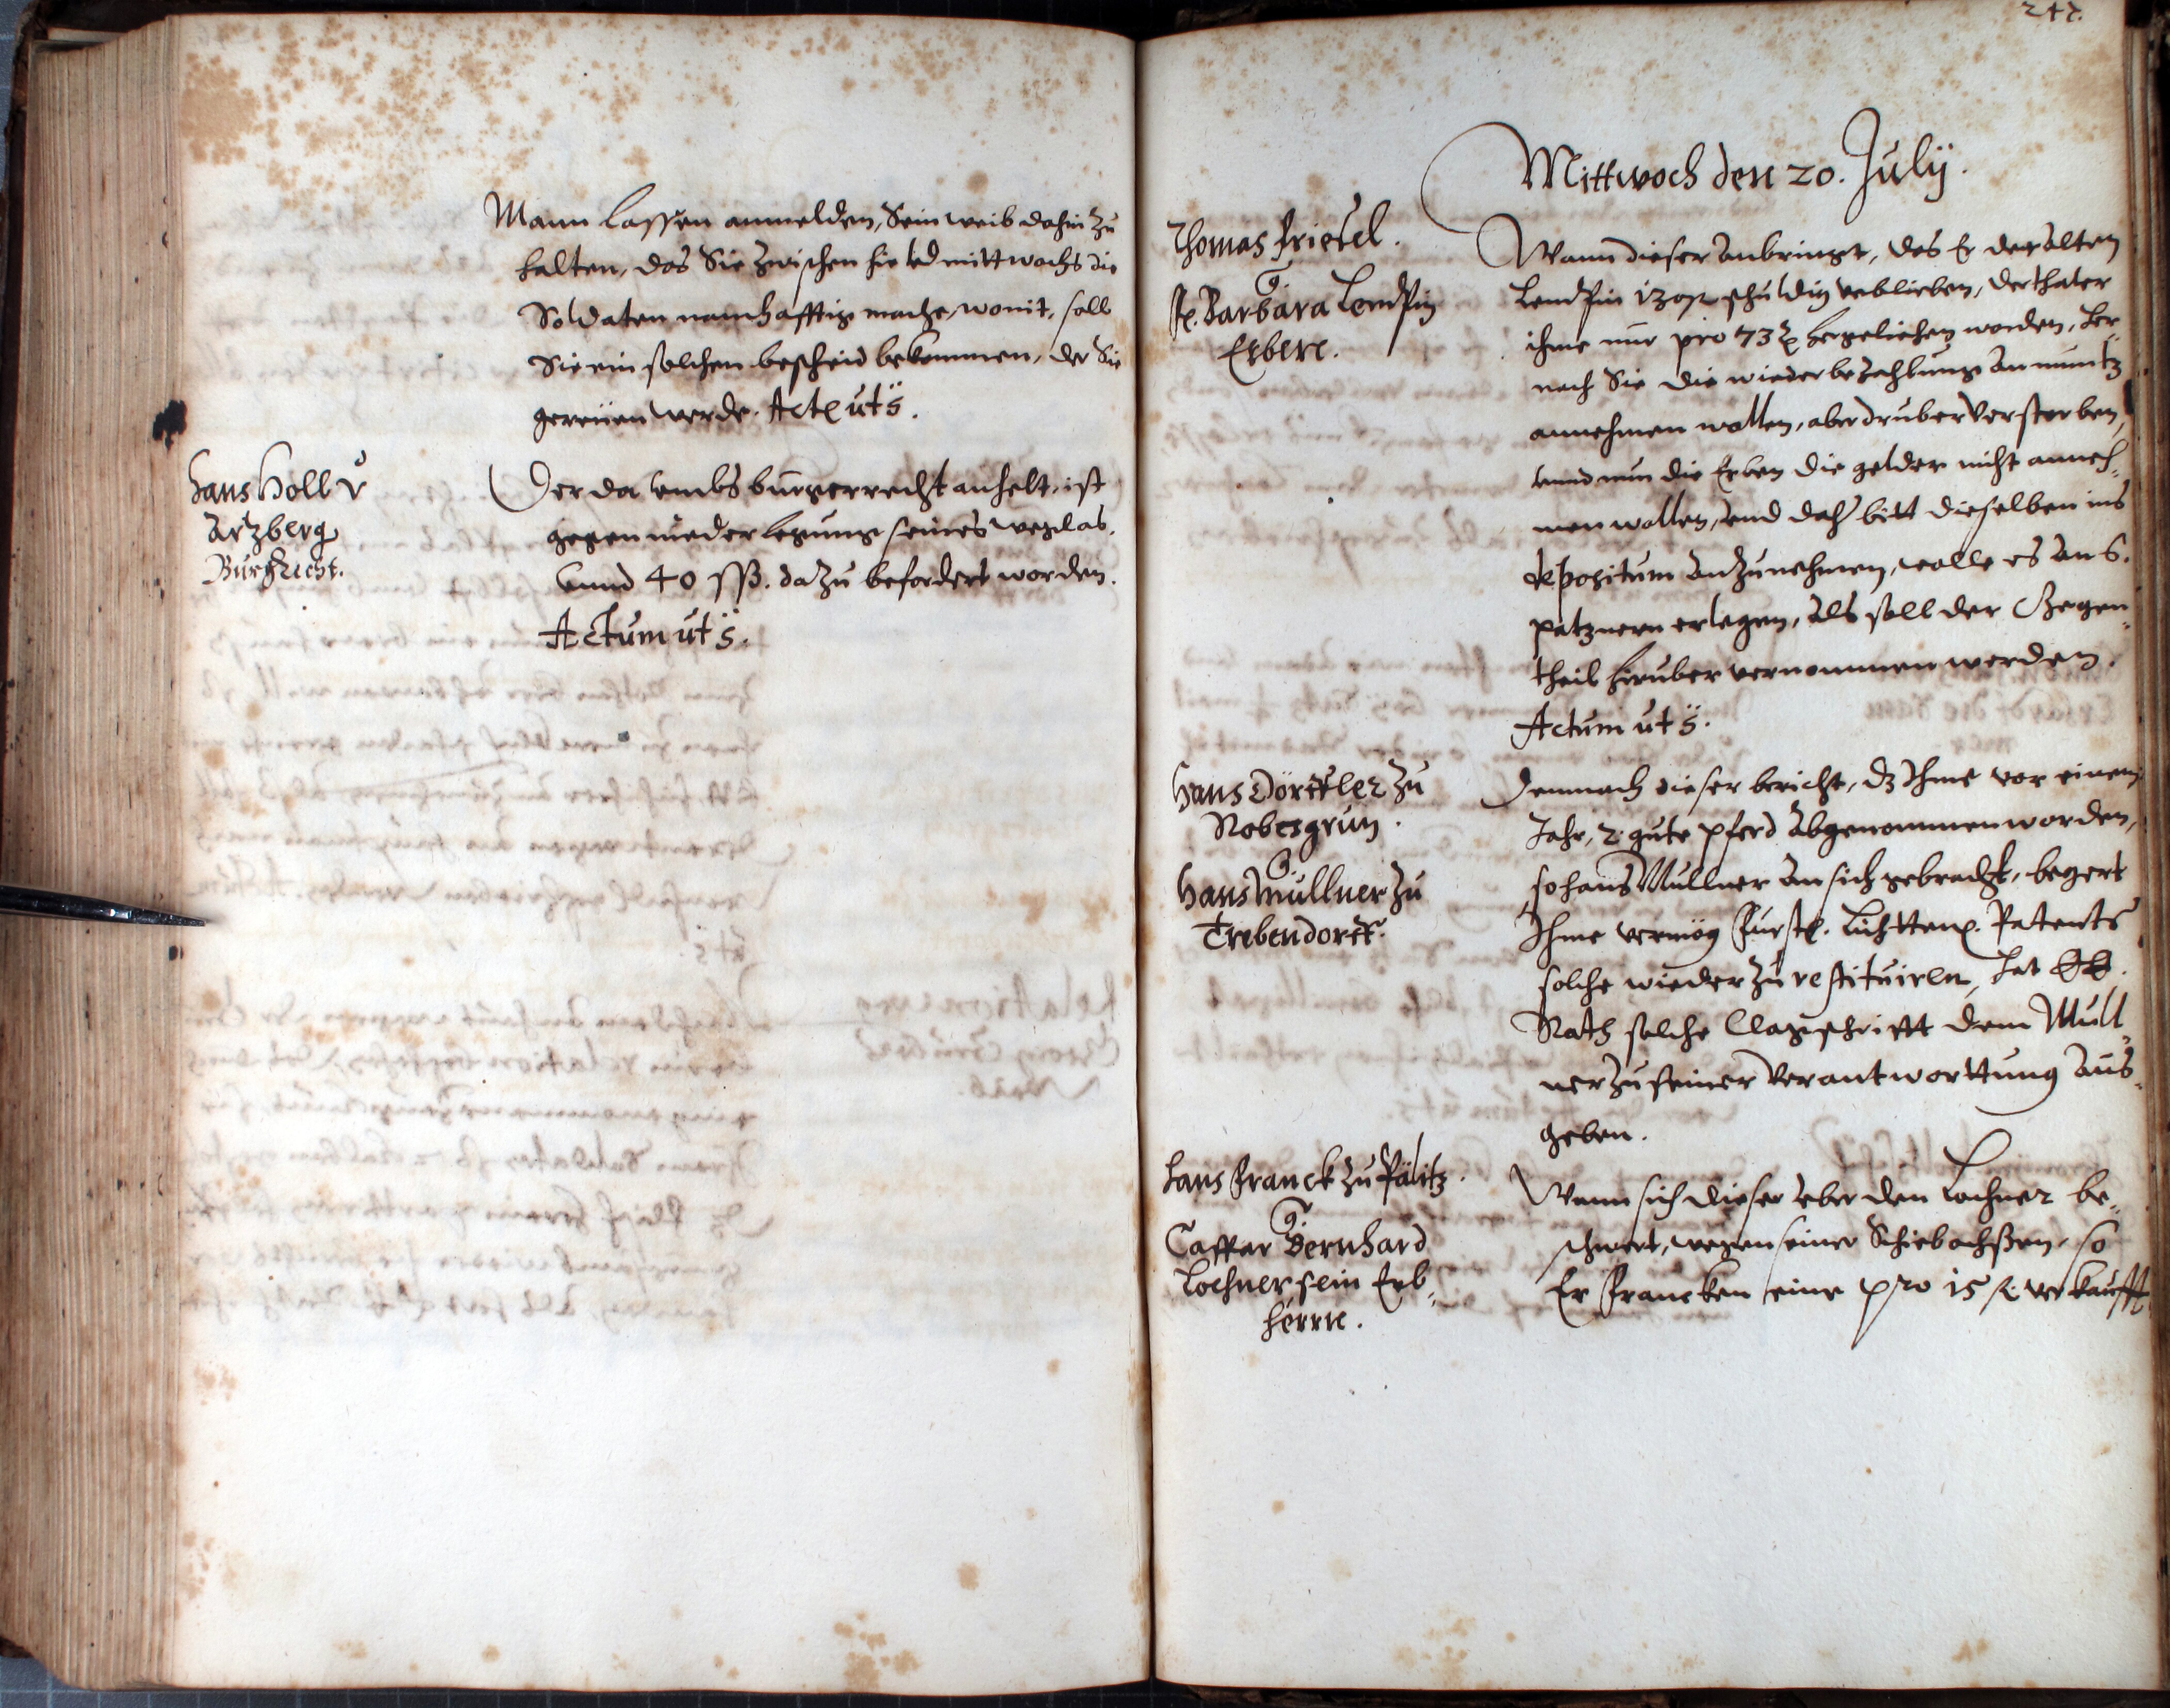 Mann lassen anmelden, Sein weib dahin zu
halten, das Sie zwischen hie vnd mittwochs die
Soldaten namhafftig mache, womit, soll
Sie ein solchen bescheid bekommen, der Sie
gereüen werde. Actū ut s̈.
Hans Holl v
Arzberg
Burgrecht.
Der da vmbs burgerrecht anhelt, ist
gegen niederlegung seines
vnnd 40 ßß. dazu befordert worden.
Actum ut s̈.
247.
Mittwoch den 20. Julÿ.
Thomas Friesel.
Cª.
Fr. Barbara
Erben.
Wann dieser anbringt, das Er der alten
schuldig verblieben, der thaler
ihme nur pro 73 hergeliehen worden, her„
nach Sie die wiederbezahlung an muntz
annehmen wollen, aber druber verstorben,
vnnd nun die Erben die gelder nicht anneh„
men wollen, vnd dahr bitt dieselben ins
depositum anzunehmen, wolle es an 6.
patznern erlegen, Als soll der Gegen„
theil hieruber vernommen werden.
Actum ut s̈.
Hans Dörffler zu
Nobesgrun.
Cª.
Hans Müllner zu
Trebendorff.
Demnach dieser bericht, dz Ihme vor einem
Jahr, 2. gute pferd abgenommen worden,
so hans Mullner an sich gebracht, begert
Ihme vermög Fürstl. Liechten. Patents
solche wieder zu restituiren, hat EE.
Rath solche Clagschrifft dem Mull„
ner zu seiner verantworttung aus„
geben.
Hans Franck zu Pälitz.
Cª.
Caspar Bernhard
Lochner, sein Erb„
herrn.
Wann sich dieser vber den Lochner be„
schwert, wegen seiner Schiebochßen, so
Er Francken eine pro 15 fl. verkaufft